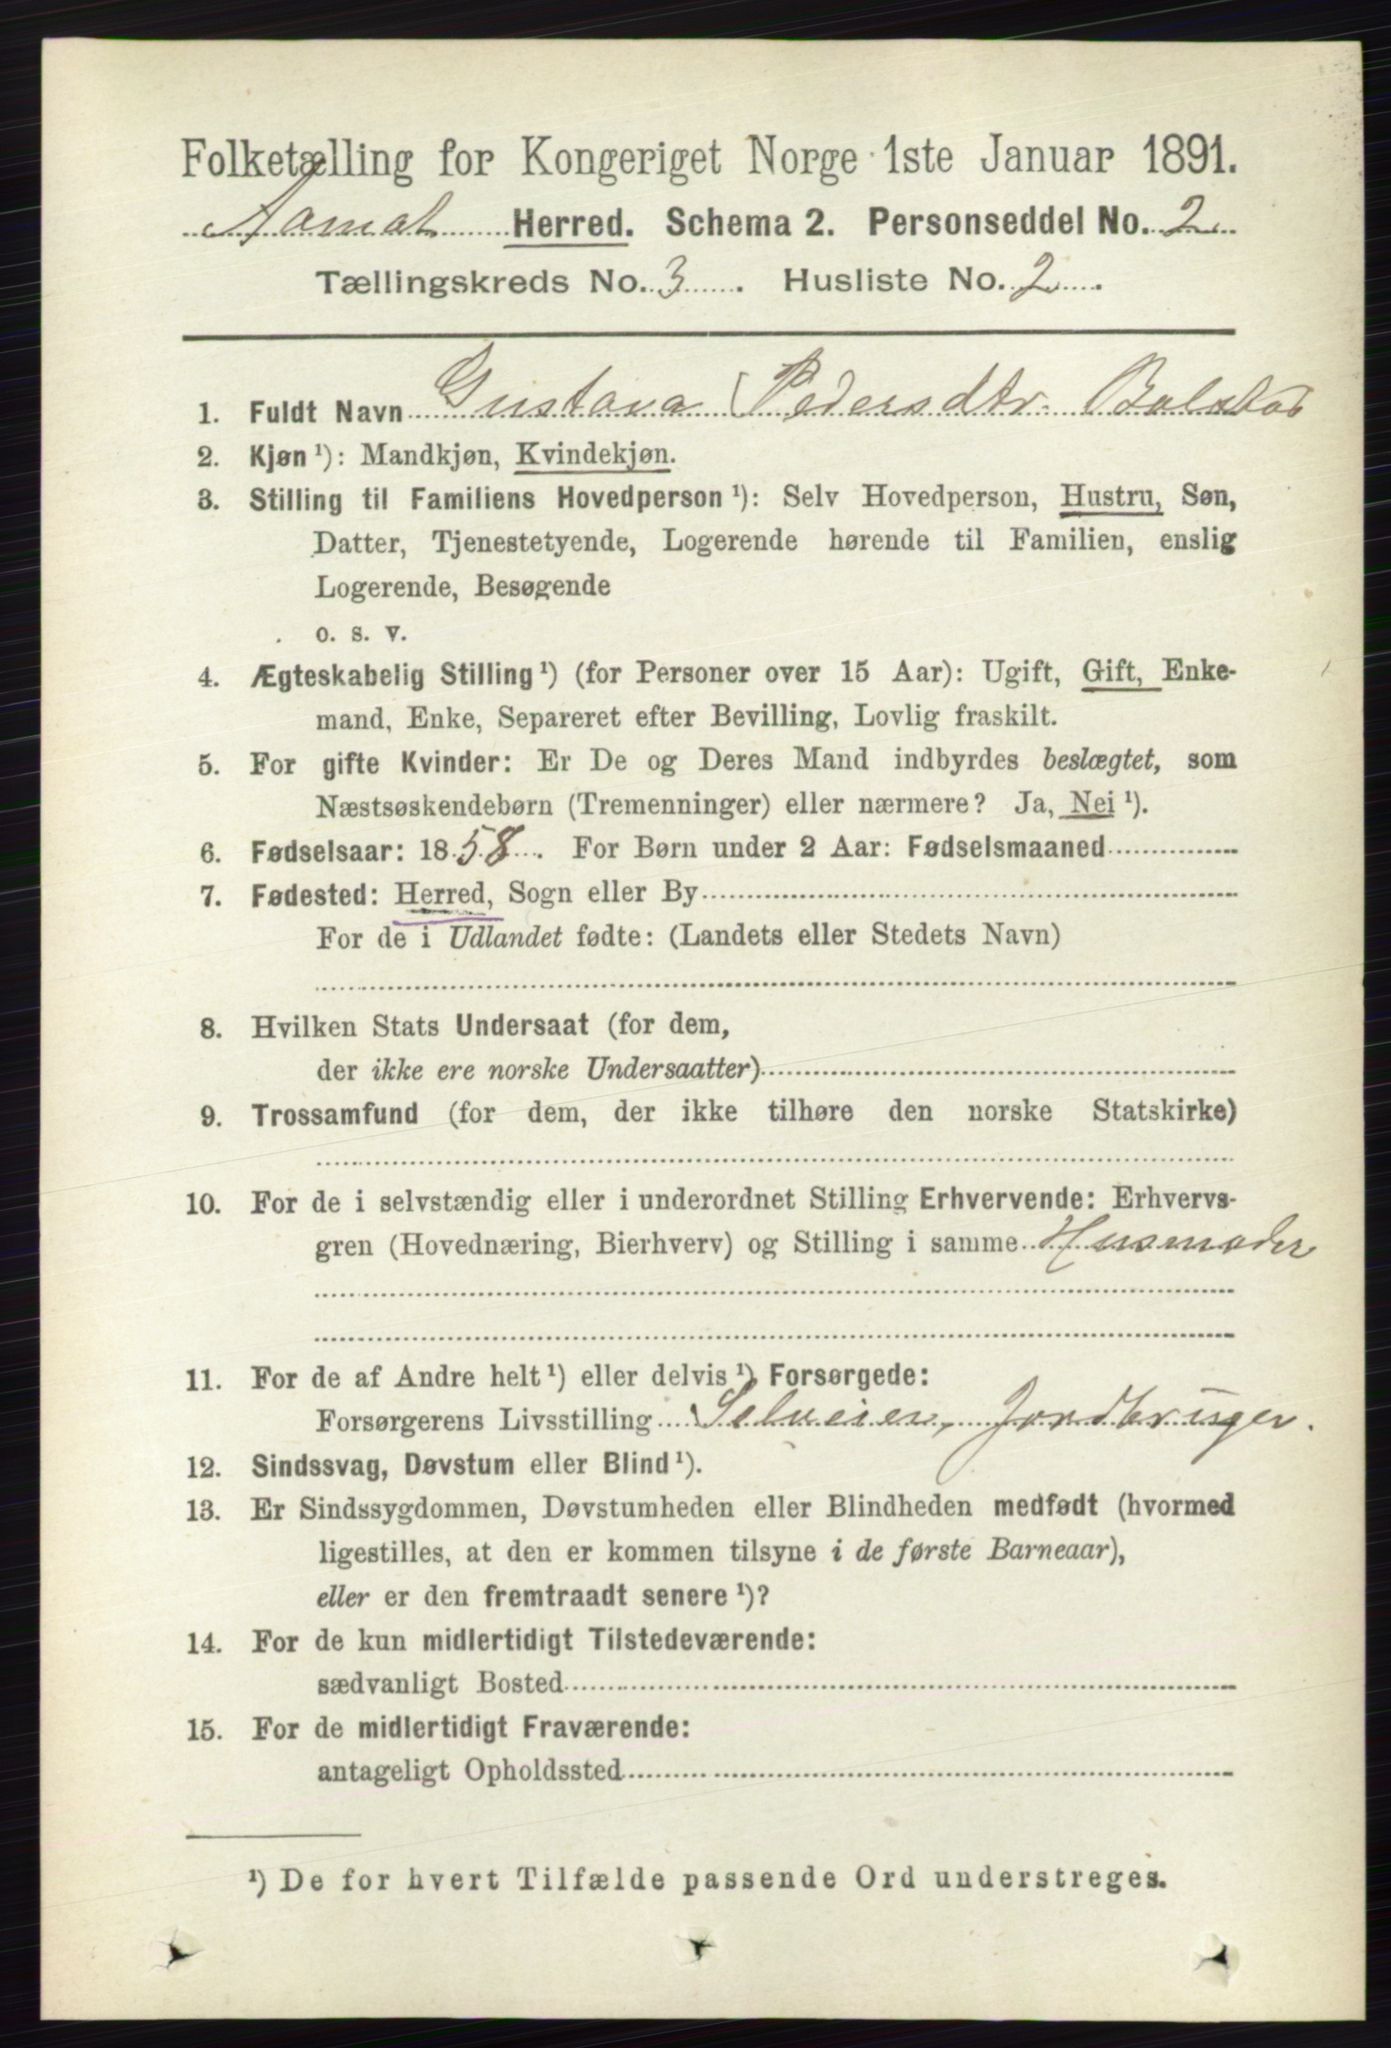 Folketælling for Kongeriget Norge 1ste Januar 1891.
Aamot Herred. Schema 2. Personseddel No. 2
Tællingskreds No. 3. Husliste No. 2.
1. Fuldt Navn Gustava Pedersdtr. Bolstad
2. Kjøn ¹): Mandkjøn, Kvindekjøn.
3. Stilling til Familiens Hovedperson ¹): Selv Hovedperson, Hustru, Søn,
Datter, Tjenestetyende, Logerende hørende til Familien, enslig
Logerende, Besøgende
o. s. v.
4. Ægteskabelig Stilling ¹) (for Personer over 15 Aar): Ugift, Gift, Enke-
mand, Enke, Separeret efter Bevilling, Lovlig fraskilt.
5. For gifte Kvinder: Er De og Deres Mand indbyrdes beslægtet, som
Næstsøskendebørn (Tremenninger) eller nærmere? Ja, Nei ¹).
6. Fødselsaar: 1858. For Børn under 2 Aar: Fødselsmaaned
7. Fødested: Herred, Sogn eller By
For de i Udlandet fødte: (Landets eller Stedets Navn)
8. Hvilken Stats Undersaat (for dem,
der ikke ere norske Undersaatter)
9. Trossamfund (for dem, der ikke tilhøre den norske Statskirke)
10. For de i selvstændig eller i underordnet Stilling Erhvervende: Erhvervs-
gren (Hovednæring, Bierhverv) og Stilling i samme Husmoder
11. For de af Andre helt ¹) eller delvis ¹) Forsørgede:
Forsørgerens Livsstilling Selveier, Jordbruger.
12. Sindssvag, Døvstum eller Blind ¹).
13. Er Sindssygdommen, Døvstumheden eller Blindheden medfødt (hvormed
ligestilles, at den er kommen tilsyne i de første Barneaar),
eller er den fremtraadt senere ¹)?
14. For de kun midlertidigt Tilstedeværende:
sædvanligt Bosted
15. For de midlertidigt Fraværende:
antageligt Opholdssted
¹) De for hvert Tilfælde passende Ord understreges.